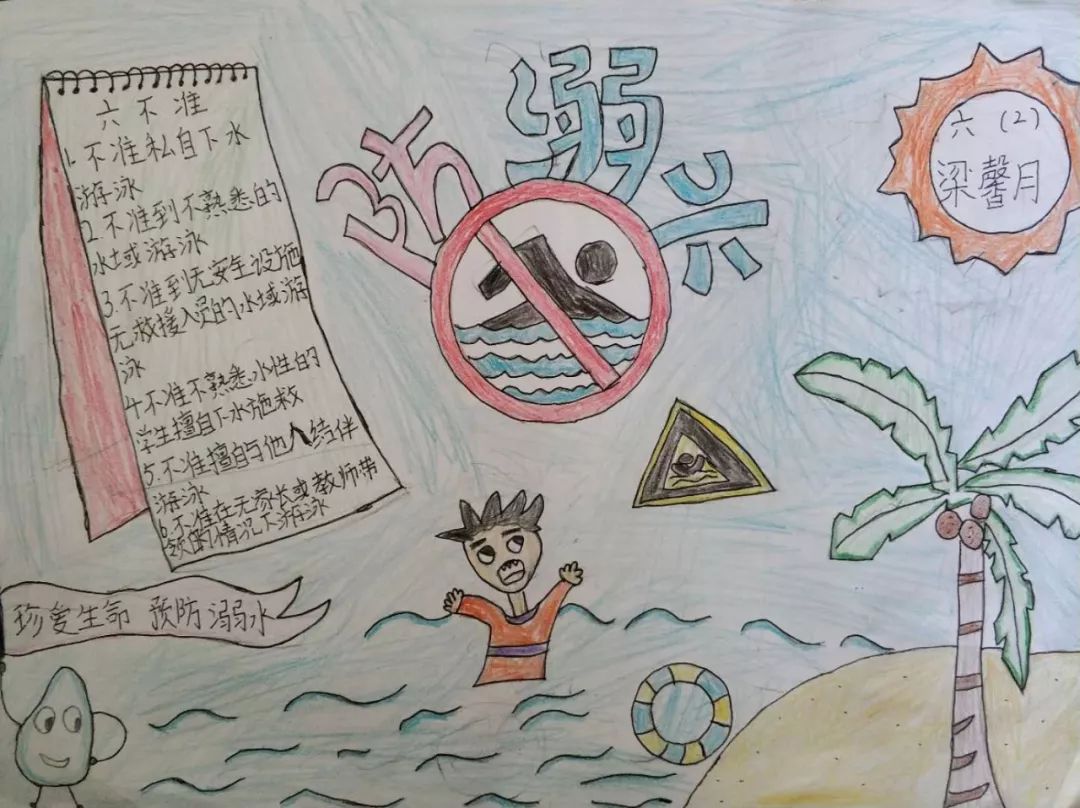 防溺六
六不准
1.不准私自下水
游泳
2.不准到不熟悉的
水域游泳
3.不准到无安全设施
无救援人员的水域游
泳
4不准不熟悉水性的
学生擅自下水施救
5.不准擅自与他人结伴
游泳
6.不准在无家长或教师带
领的情况下游泳
六（2）
梁馨月
珍爱生命 预防溺水